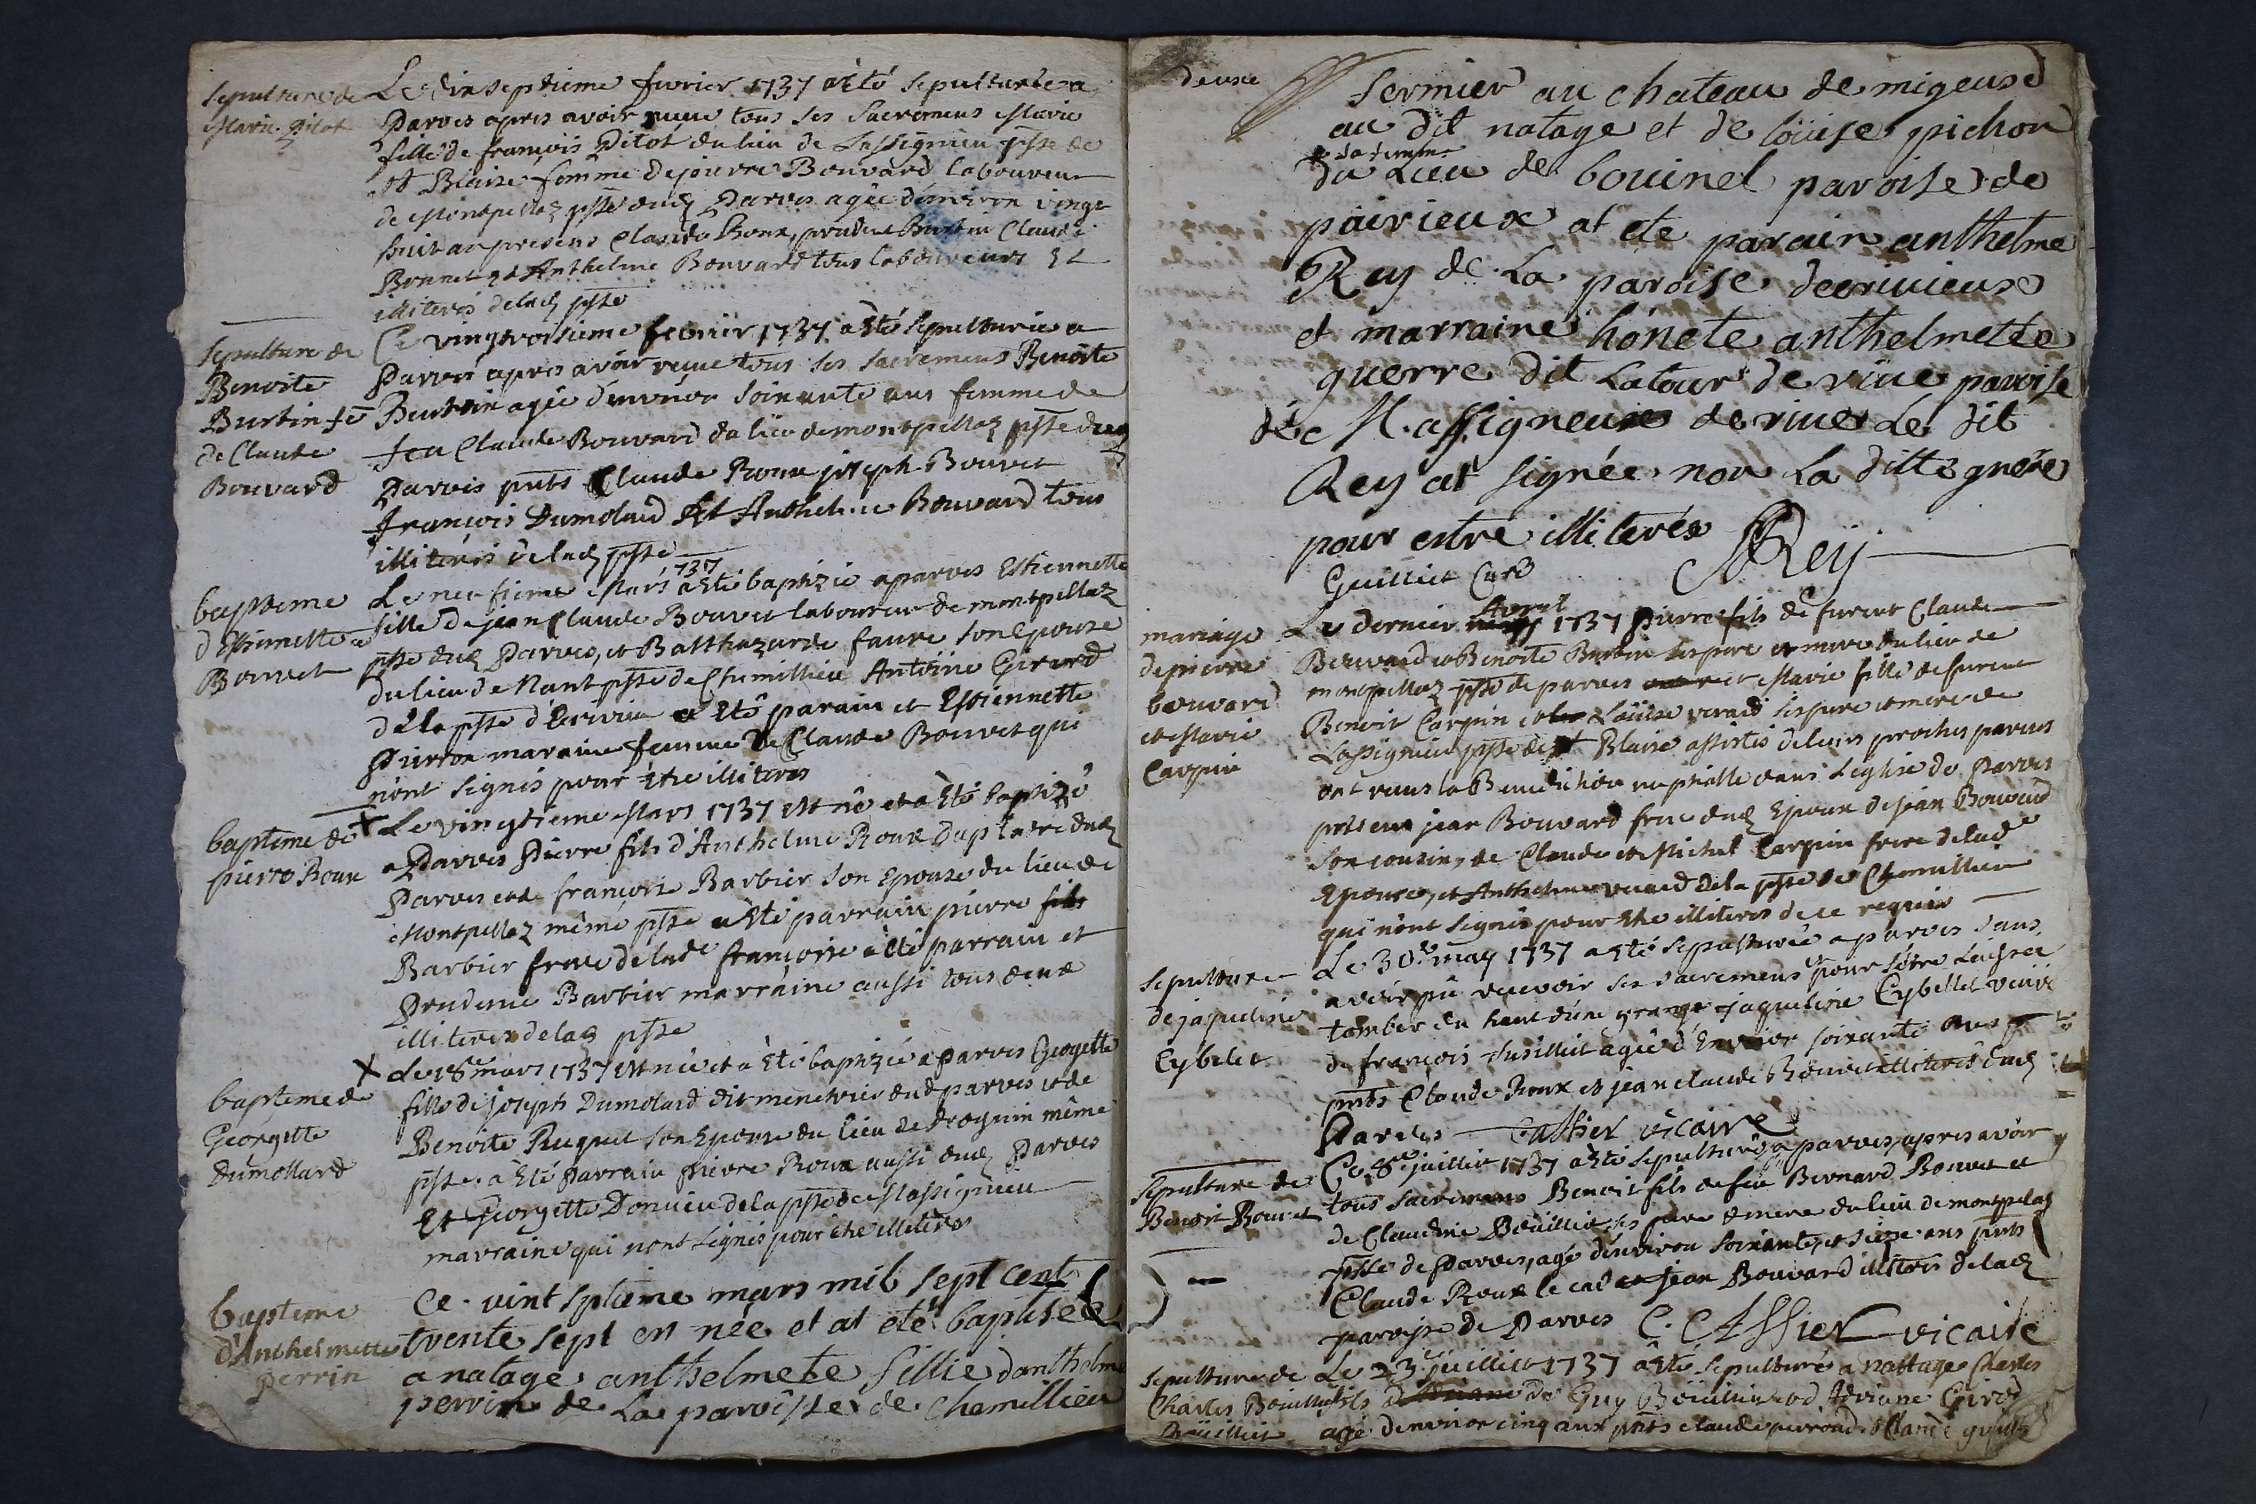 sepulture de
Marie Pitot
Le dixseptieme fevrier 1737 a êté sepulturée a
Parves apres avoir reçue tous ses sacremens Marie
fille de françois Pitot du lieu de Lassignieu psse de
st Blaise femme de pierre Bouvard laboureur
de Montpellaz psse dud Parves agée d'environ vingt
huit ans presens Claude Roux, Burtin Claude
Bonnet et Anthelme Bouvard tous laboureurs Et
illiterés de lad psse
sepulture de
Benoite
Burtin fe
de Claude
Bouvard
Ce vingtroisieme fevrier 1737 a êté sepulturée a
Parves apres avoir reçue tous ses sacremens Benoite
Burtin agée d'environ soixante ans femme de
feu Claude Bouvard du lieu de montpellaz psse dud
Parves pnts Claude Roux joseph Bouvet
françois Dumolard Et Anthelme Bouvard tous
illiterés de lad psse
bapteme
d'Estiennette
Bouvet
Le neufieme Mars 1737 a êté baptizée a parves Estiennette
fille de jean Claude Bouvet laboureur de montpellaz
psse dud Parves, et Balthazarde faure son Epouse
du lieu de Nant psse de Chumillieu Antoine Girerd
de la psse d'Ecrivieu a êté parain et Estiennette
Pierron maraine femme de Claude Bouvet qui
n'ont signés pour être illiteres
bapteme de
pierre Roux
x Le vingtieme Mars 1737 est né et a êté baptizé
a Parves Pierre fils d'Anthelme Roux dud
Parves et de françoise Barbier son Epouse du lieu de
Montpellaz même psse a êté parrain pierre fils
Barbier frere de lade françoise a êté parrain et
Prudence Barbier marraine aussi tous deux
illiteres de lad psse
bapteme de
Georgette
dumollard
x Le 18e mars 1737 est née et a êté baptizée a Parves Georgette
fille de joseph Dumolard dit menetrier dud parves et de
Benoite Puguet son Epouse du lieu de Drognin même
psse. a êté Parrain Pierre Roux aussi dud Parves
Et Georgette Donieu de la psse de Massignieu
marraine qui n'ont signés pour être illiteres
bapteme
d'Anthelmette
perrin
Ce vint sptieme mars mil sept cent
trente sept en née et at eté baptisée
a natage anthelmete fillie danthelme
perrin de La paroisse de Chemillieu
deuse
fermier au chateau de migeuse
au dit natage et de loüise pichon
sa femme
du Lieu de bouinel paroise de
pairieux at ete parain anthelme
Rey de La paroise decrivieux
et marraine honete anthelmette
guerre dit Latour de riue paroise
de M.assigneux de rives Le dit
Rey at signée non La ditte guere
pour estre illiterés
Guilliet Curé Rey
mariage
de pierre
bouvard
et Marie
Carpin
Le dernier Avril 1737 Pierre fils de furent Claude
Bouvard et Benoite Burtin ses pere et mere du lieu de
montpellaz psse de parves et Marie fille de furent
Benoit Carpin et Loüise verard ses pere et mere de
Lassignieu psse de st Blaise assistés de leurs proches parens
ont reçus la Benediction nuptialle dans L'eglise de Parves
presens jean Bouvard frere dud Epoux de jean Bouvard
son cousin, de Claude et Michel Carpin frere de lade
Epouse, et Anthelme verard de la psse de Chemillieu
qui n'ont signés pour être illiteres de ce requis
sepulture
de jaqueline
Cybelet
Le 30e may 1737 a êté sepulturée a parves sans
avoir pû recevoir ses sacremens pour s'être laissée
tomber du haut d'une grange jaqueline Cybellet veuve
de françois agée d'Environ soixante ans
pnts Claude Roux et jean claude Bouvet illiteres dud
Parves Cathier vicaire
sepulture de
Benoit Bouvet
Ce 8e juillet 1737 a êté sepulturé a parves, apres avoir
tous sacremens Benoit fils de feu Bernard Bouvet et
de Claudine Beüillier ses pere et mere du lieu de montpelaz
psse de Parves, agé d'environ soixante et seize ans pnts
Claude Roux le cad et jean Bouvard illiteres de lad
paroisse de Parves C. Cathier vicaire
sepulture de
Charles Bouillier
Le 23e juillet 1737 a êté sepulturé a nattage Charles
fils de Guy Boüillier et d'Adriane Girod
agé d'environ cinq ans pnts claude perroud, Claude